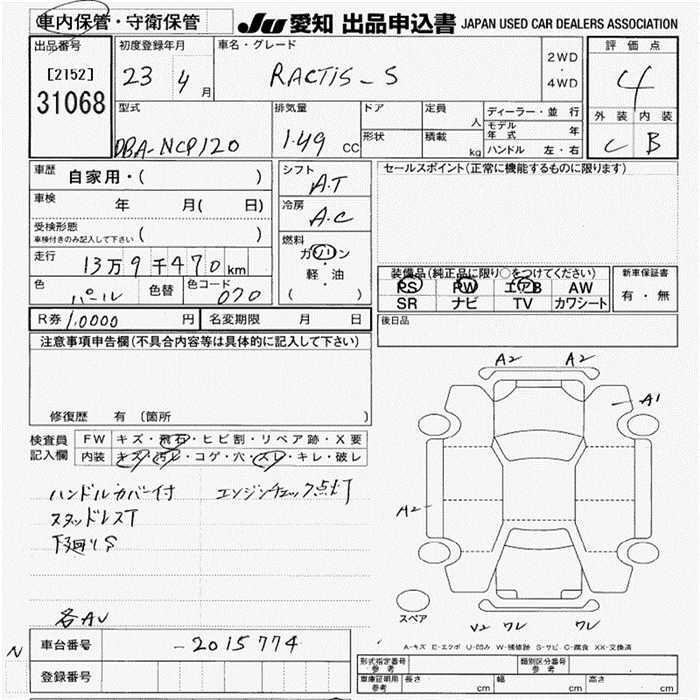 車内保管・守衛保管
JU 愛知 出品申込書 JAPAN USED CAR DEALERS ASSOCIATION
出品番号
[2152]
31068
初度登録年月
23 4月
車名・グレード
RACTIS-S
2WD
・
4WD
評価点
4
外装 内装
C B
型式
DBA-NCP120
排気量
1.49 CC
ドア
形状
定員
人
積載
kg
ディーラー・並行
モデル年式 年
ハンドル 左・右
車歴 自家用・( )
車検 年 月( 日)
受検形態
車検付きのみ記入して下さい ( )
走行
13万9千470km
色 パール 色替 色コード 070
シフト
A.T
冷房
A.C
燃料
ガソリン
・
軽・油
( )
セールスポイント(正常に機能するものに限ります)
装備品(純正品に限り○をつけてください)
PS PW エアB AW
SR ナビ TV カワシート
新車保証書
有・無
後日品
R券 10000 円 名変期限 月 日
注意事項申告欄(不具合内容等は具体的に記入して下さい)
修復歴 有 〔箇所 〕
検査員記入欄
FW キズ・飛石・ヒビ割・リペア跡・X要
内装 キズ・汚レ・コゲ・穴・スレ・キレ・破レ
ハンドルカバー付 エンジンチェック点灯
スタッドレスT
下廻りS
各AU
A2 A2
A1
A2
スペア
V2 ワレ ワレ
A-キズ E-エクボ U-凹み W-補修跡 S-サビ C-腐食 XX-交換済
N
車台番号 -2015774
登録番号
形式指定番号 参考
類別区分番号 参考
車庫証明用 参考 長さ cm 幅 cm 高さ cm